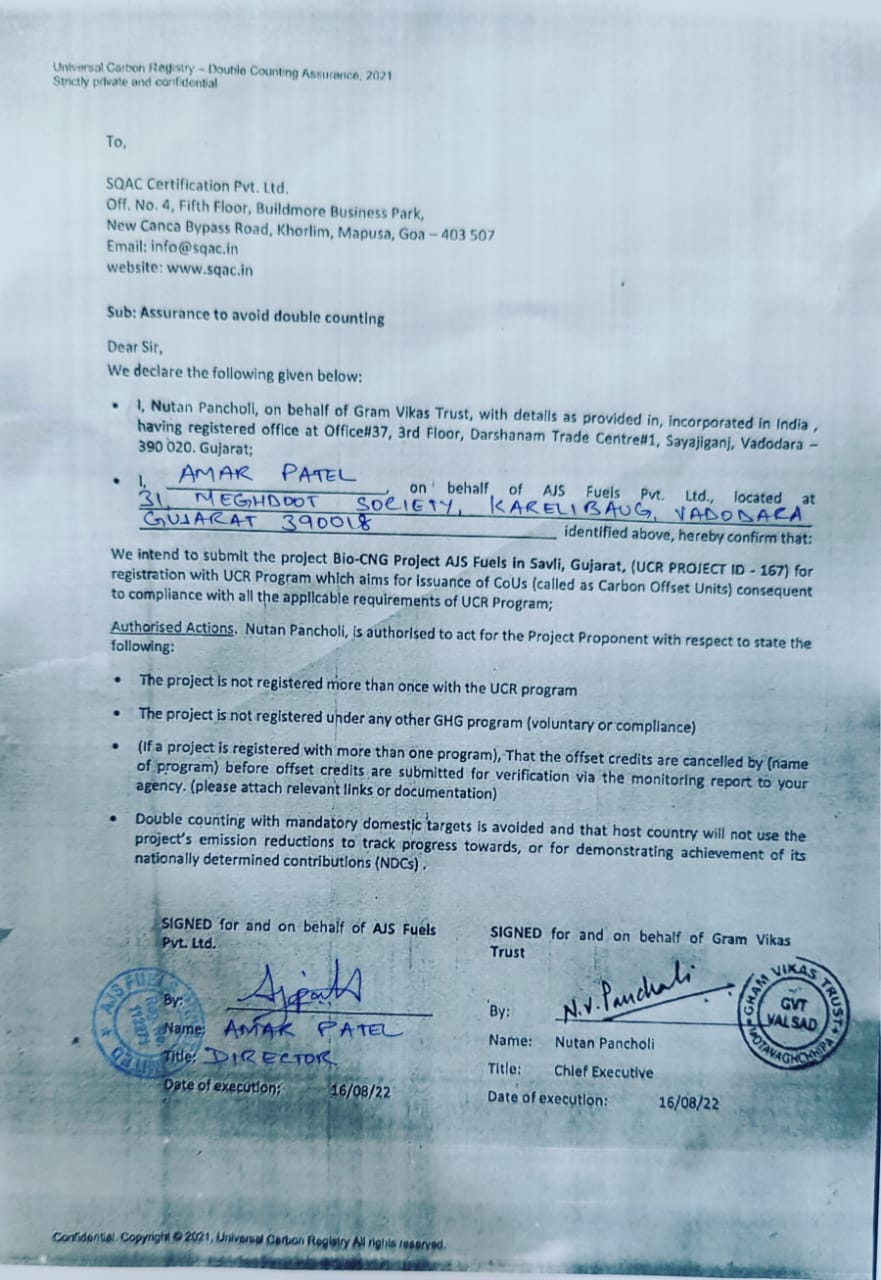 Universal Carbon Registry – Double Counting Assurance, 2021
Strictly private and confidential
To,
SQAC Certification Pvt. Ltd.
Off. No. 4, Fifth Floor, Buildmore Business Park,
New Canca Bypass Road, Khorlim, Mapusa, Goa – 403 507
Email: info@sqac.in
website: www.sqac.in
Sub: Assurance to avoid double counting
Dear Sir,
We declare the following given below:
• I, Nutan Pancholi, on behalf of Gram Vikas Trust, with details as provided in, incorporated in India ,
having registered office at Office#37, 3rd Floor, Darshanam Trade Centre#1, Sayajiganj, Vadodara –
390 020. Gujarat;
• I, AMAR PATEL, on behalf of AJS Fuels Pvt. Ltd., located at
31, MEGHDOOT SOCIETY, KARELIBAUG, VADODARA
GUJARAT 390018 identified above, hereby confirm that:
We intend to submit the project Bio-CNG Project AJS Fuels in Savli, Gujarat, (UCR PROJECT ID - 167) for
registration with UCR Program which aims for issuance of CoUs (called as Carbon Offset Units) consequent
to compliance with all the applicable requirements of UCR Program;
Authorised Actions. Nutan Pancholi, is authorised to act for the Project Proponent with respect to state the
following:
• The project is not registered more than once with the UCR program
• The project is not registered under any other GHG program (voluntary or compliance)
• (If a project is registered with more than one program), That the offset credits are cancelled by (name
of program) before offset credits are submitted for verification via the monitoring report to your
agency. (please attach relevant links or documentation)
• Double counting with mandatory domestic targets is avoided and that host country will not use the
project's emission reductions to track progress towards, or for demonstrating achievement of its
nationally determined contributions (NDCs) .
SIGNED for and on behalf of AJS Fuels
Pvt. Ltd.
By:
Name: AMAR PATEL
Title: DIRECTOR
Date of execution: 16/08/22
AJS FUELS
SIGNED for and on behalf of Gram Vikas
Trust
By: N.V. Pancholi
Name: Nutan Pancholi
Title: Chief Executive
Date of execution: 16/08/22
GRAM VIKAS TRUST
GVT
VALSAD
MOTAVAGHCHHIPA
Confidential. Copyright © 2021, Universal Carbon Registry All rights reserved.